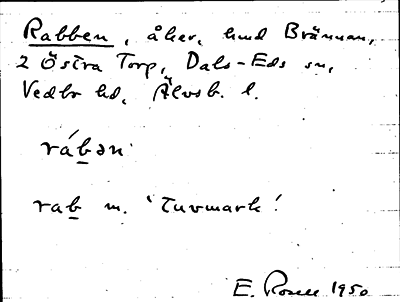 Rabben, åker, hmd Brännan,
2 Östra Torp, Dals-Eds sn,
Vedbo hd, Älvsb. l.
rábən
rab m. 'Tuvmark'.
E. Rosell 1950